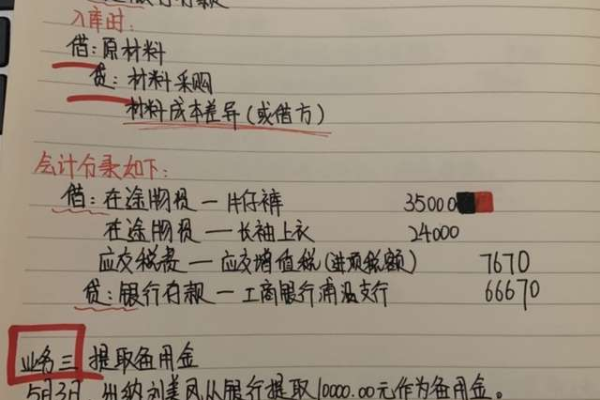 入库时:
借:原材料
贷:材料采购
材料成本差异(或借方)
会计分录如下:
借:在途物资—牛仔裤 35000
在途物资—长袖上衣 24000
应交税费—应交增值税(进项税额) 7670
贷:银行存款—工商银行浦沿支行 66670
业务三 提取备用金
5月3日,出纳刘美凤从银行提取10000.00元作为备用金。